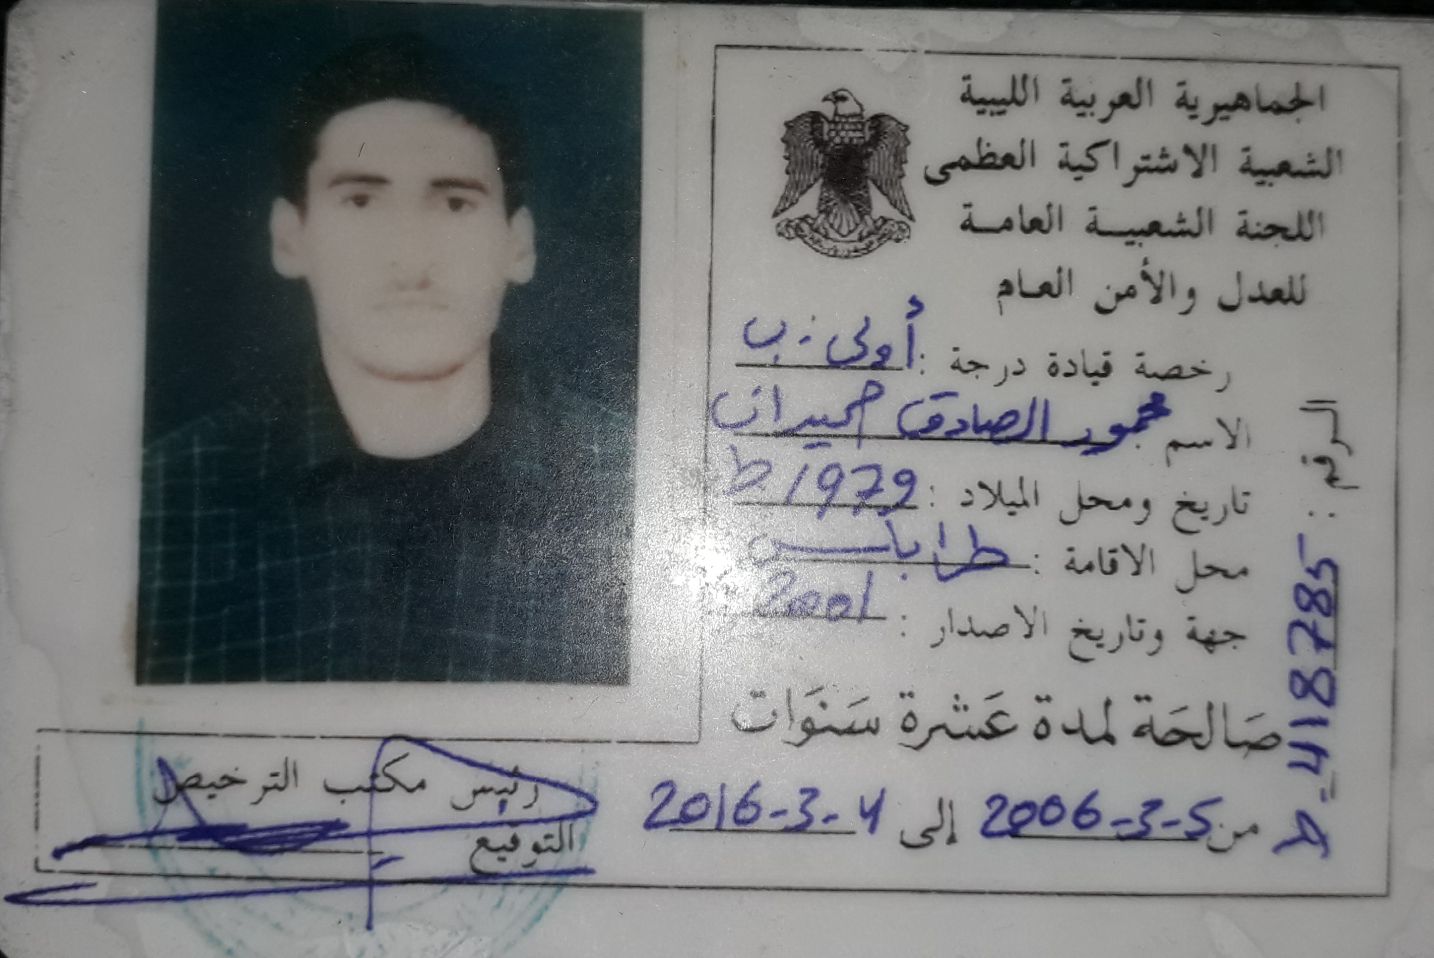 الجماهيرية العربية الليبية
الشعبية الاشتراكية العظمى
اللجنة الشعبيــة العامــة
للعدل والأمن العـام
رخصة قيادة درجة : أولى . ب
الاسم محمود الصادق حميدان
تاريخ ومحل الميلاد : 1979 ط
محل الاقامة : طرابلس
جهة وتاريخ الاصدار : 2001
صَالحَة لمدة عَشرة سَنوَات
من 5-3-2006 إلى 4-3-2016
الرقم : 418785 - ط
رئيس مكتب الترخيص
التوقيع